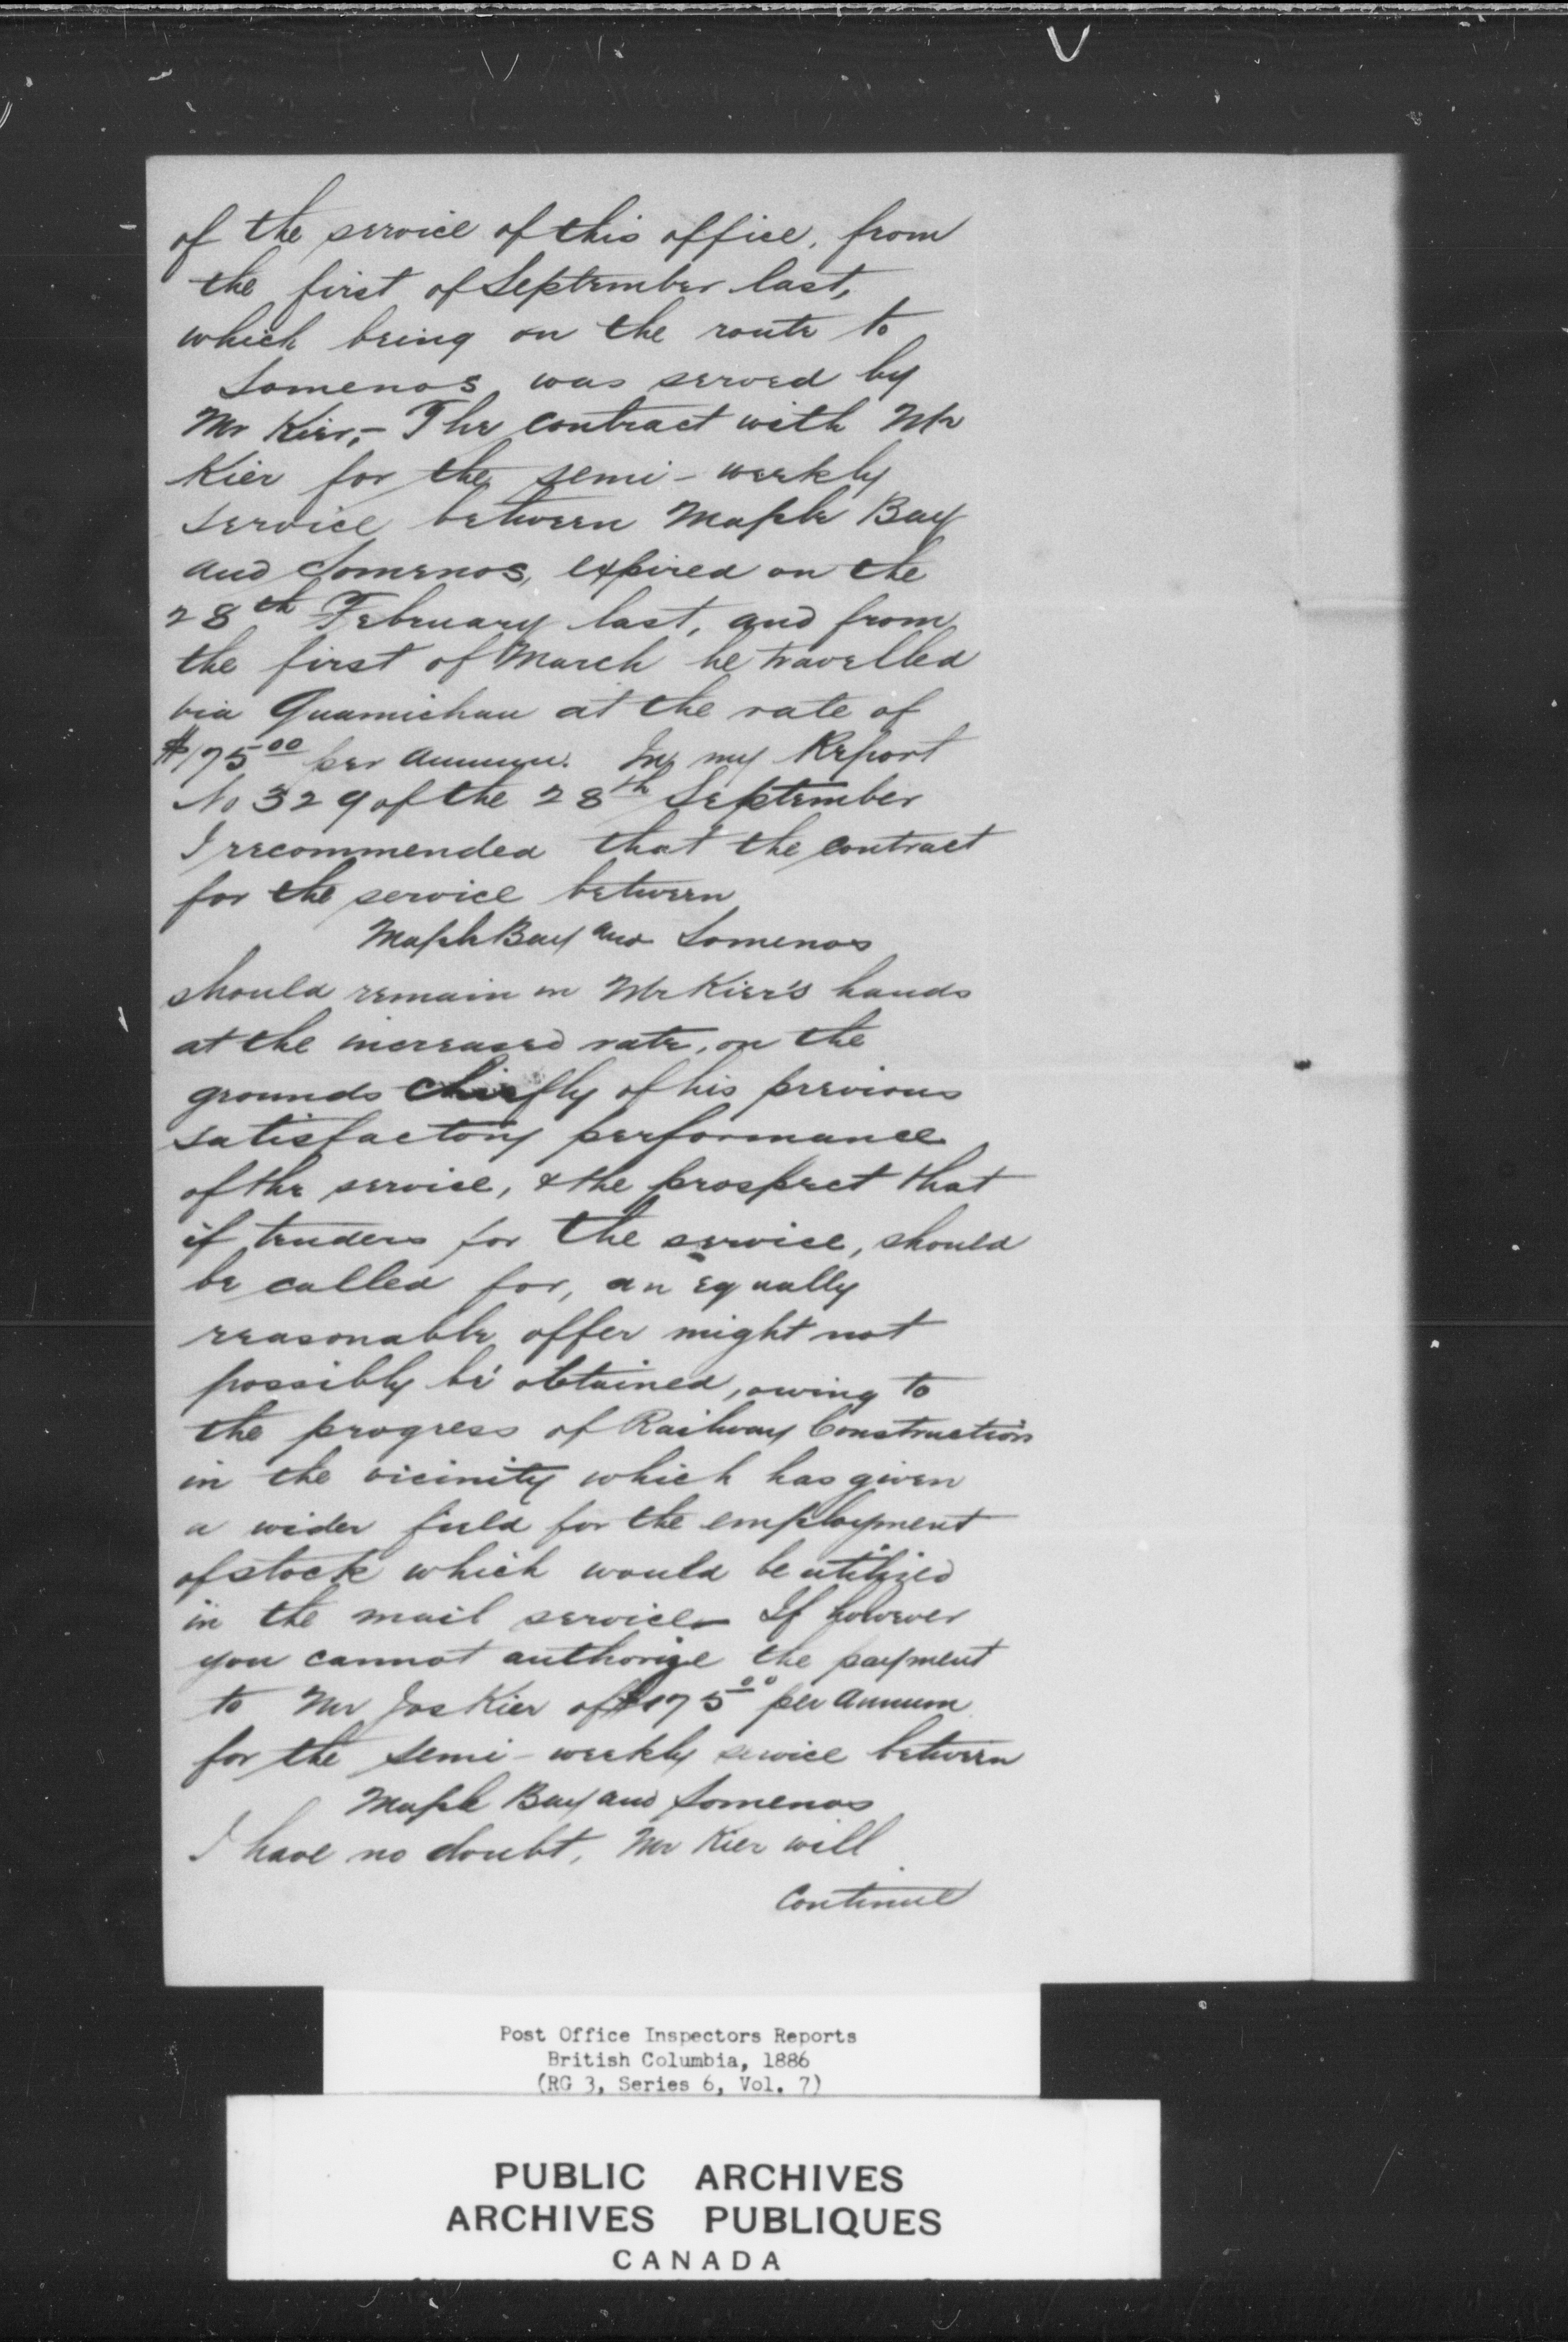 of the service of this office, from
the first of September last,
which being on the route to
Somenos, was served by
Mr Kier,- The contract with Mr
Kier for the semi-weekly
service between Maple Bay
and Somenos, expired on the
28th February last, and from
the first of March he travelled
via Quamichan at the rate of
$175.00 per annum. In my Report
No 329 of the 28th September
I recommended that the contract
for the service between
Maple Bay and Somenos
should remain in Mr Kier's hands
at the increased rate, on the
grounds chiefly of his previous
satisfactory performance
of the service, & the prospect that
if tenders for the service, should
be called for, an equally
reasonable offer might not
possibly be obtained, owing to
the progress of Railway Construction
in the vicinity which has given
a wider field for the employment
of stock which would be utilized
in the mail service- If however
you cannot authorize the payment
to Mr Jas Kier of $175.00 per annum
for the semi-weekly service between
Maple Bay and Somenos
I have no doubt, Mr Kier will
Continue
Post Office Inspectors Reports
British Columbia, 1886
(RG 3, Series 6, Vol. 7)
PUBLIC ARCHIVES
ARCHIVES PUBLIQUES
CANADA